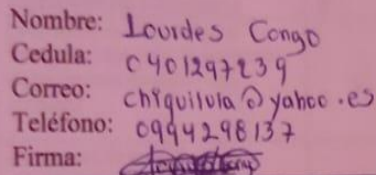 Nombre: Lourdes Congo
Cedula: 0401297239
Correo: chiquilula@yahoo.es
Teléfono: 0994298137
Firma: